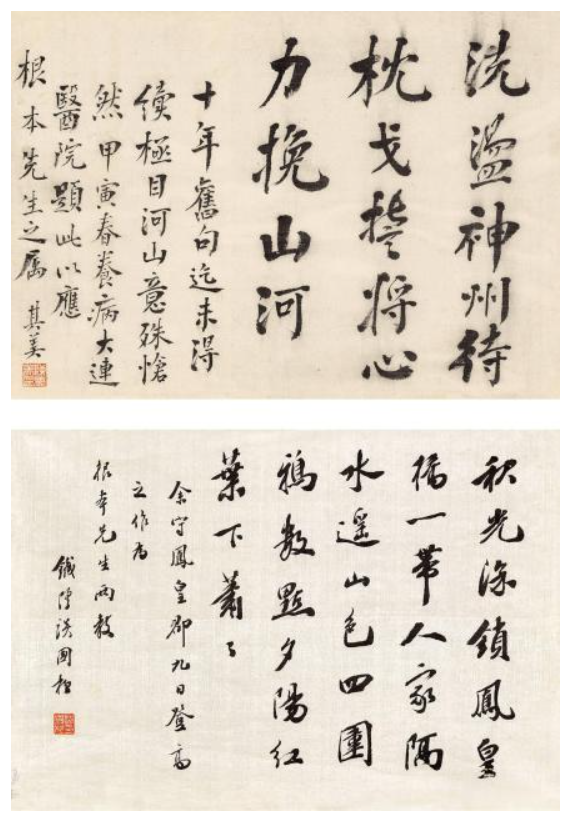 洗盪神州待
枕戈誓將心
力挽山河
十年舊句迄未得
續極目河山意殊愴
然甲寅春養病大連
醫院題此以應
根本先生之屬 其美
秋光深鎖鳳皇
橋一帶人家隔
水遥山色四圍
鴉數點夕陽紅
葉下蕭々
余守鳳皇郡九日登高
之作為
根本先生兩教
鐵隍談國桓